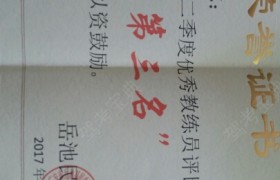 誉证书
:
二季度优秀教练员评
第三名”
以资鼓励。
岳池
2017年